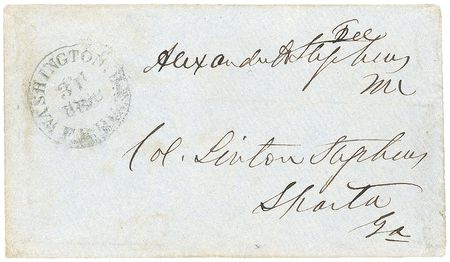 WASHINGTON
FREE
Free
Alexander H Stephens
MC
Col. Linton Stephens
Sparta
Ga